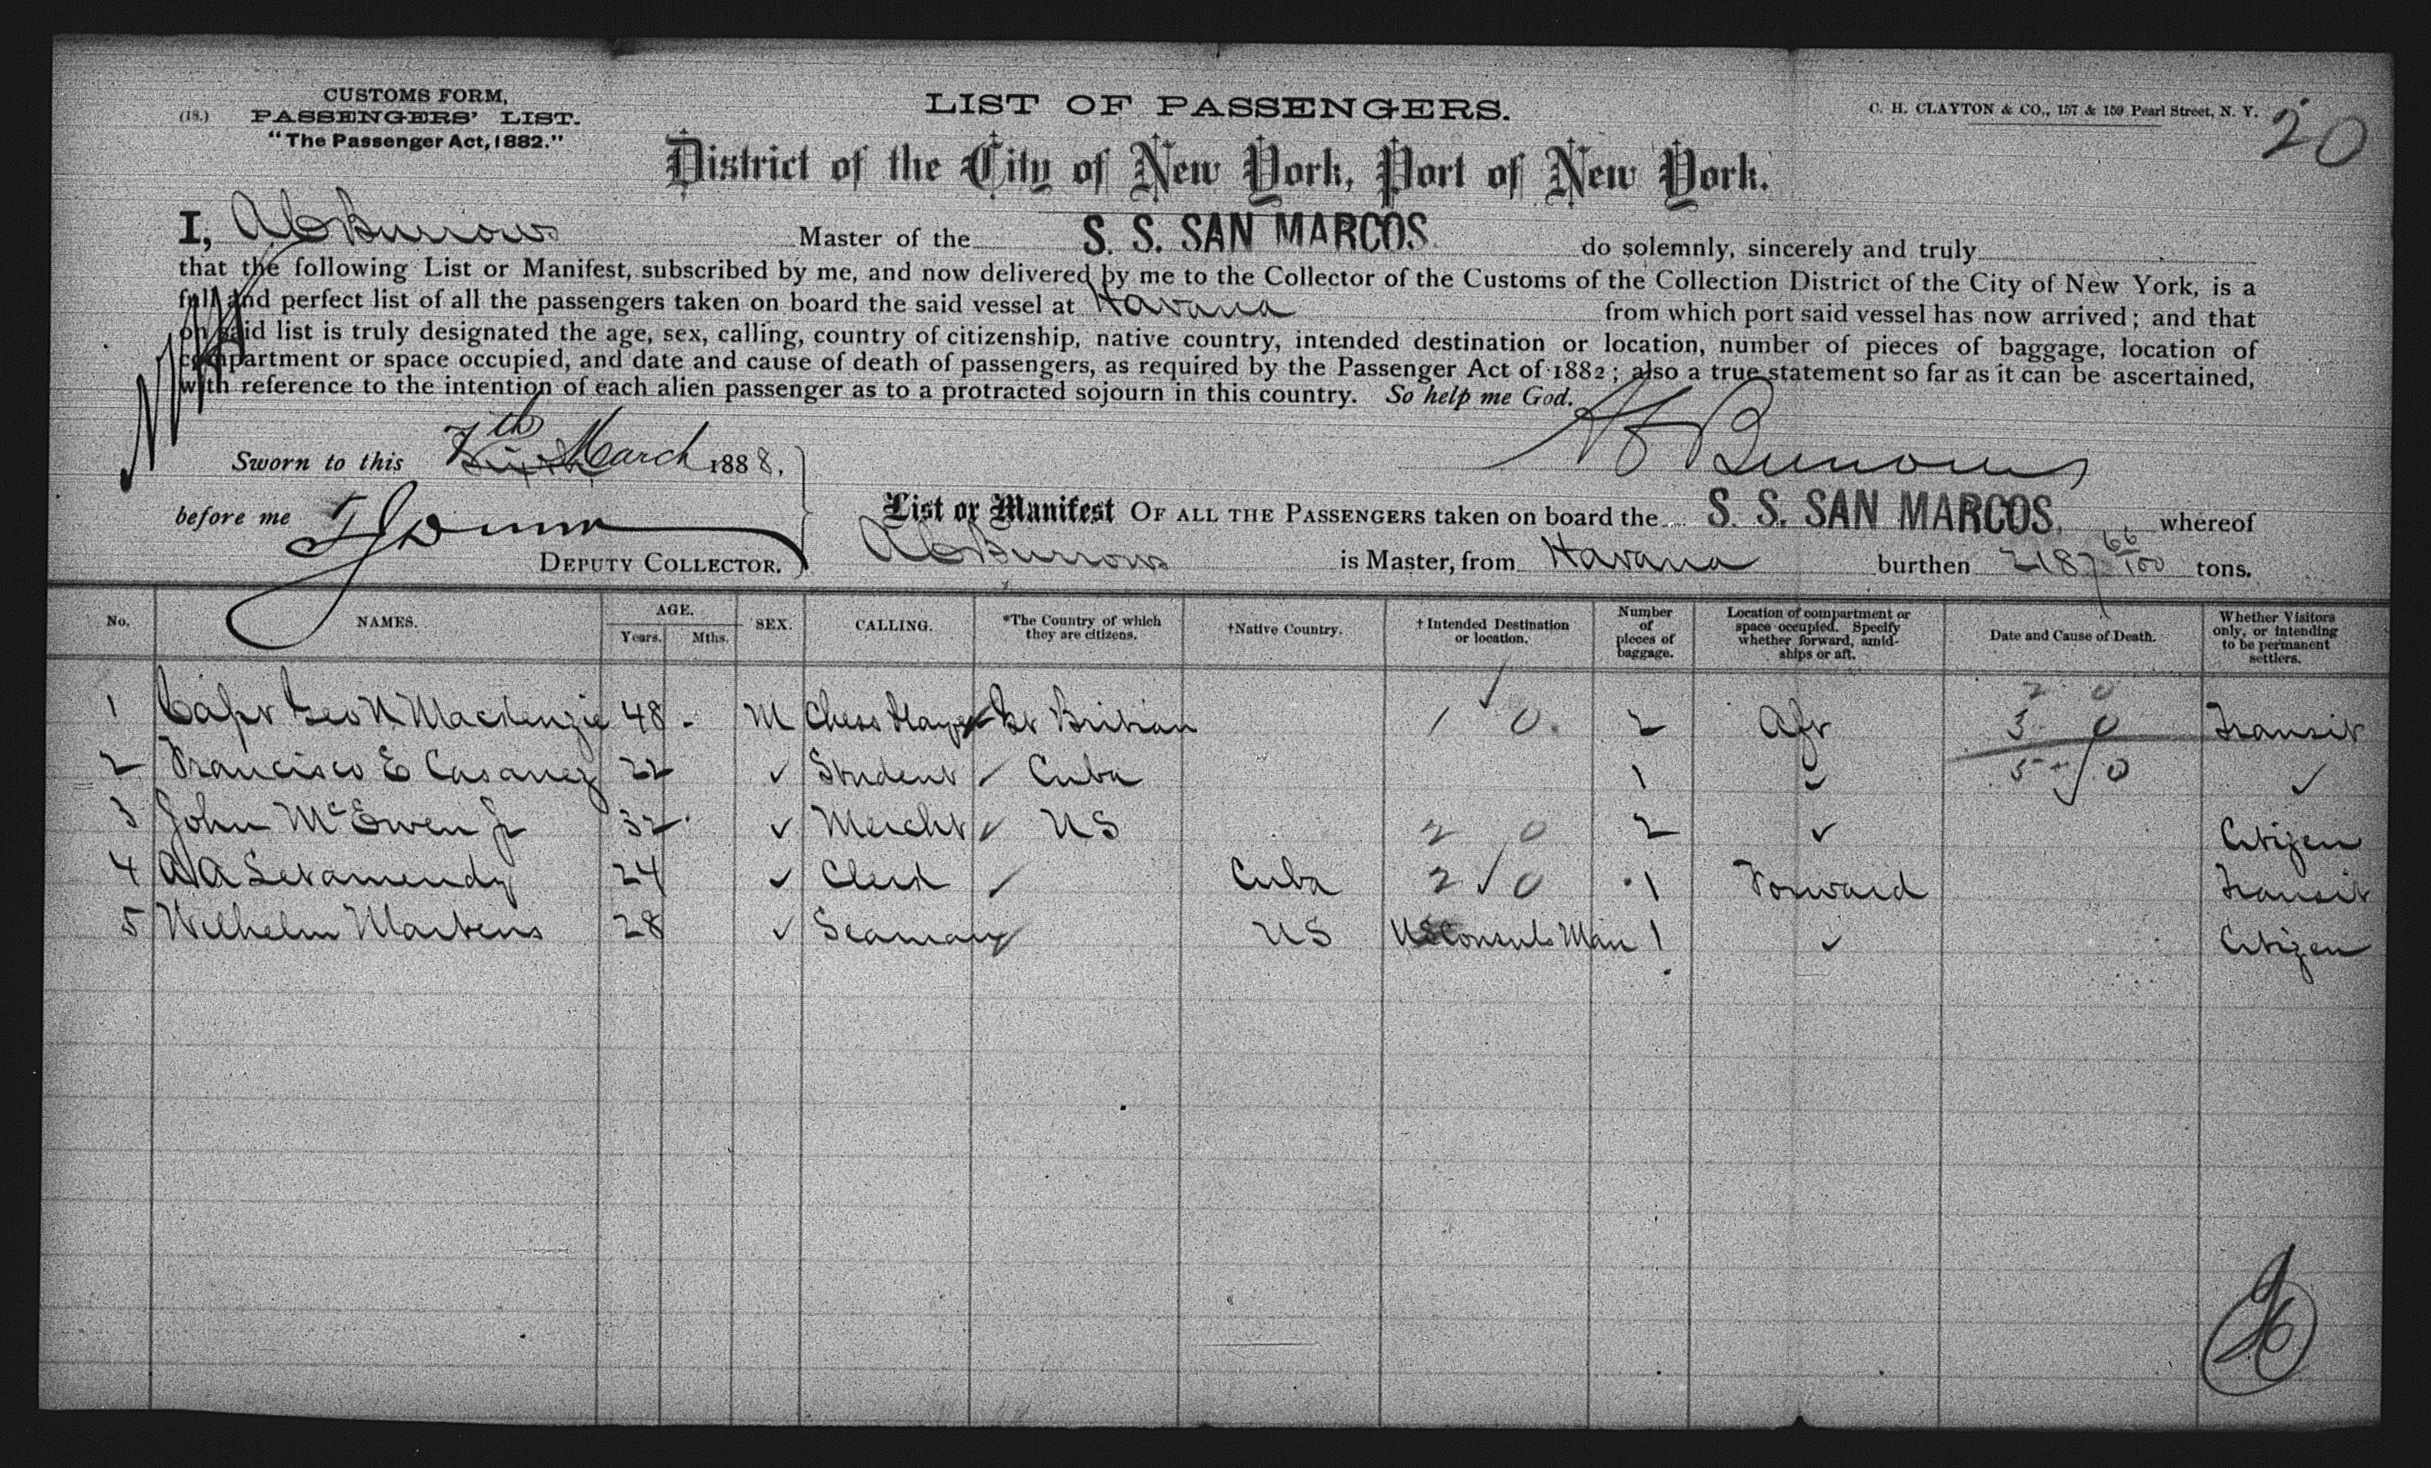 CUSTOMS FORM,
(18.) PASSENGERS' LIST.
"The Passenger Act, 1882."
LIST OF PASSENGERS.
C. H. CLAYTON & CO., 157 & 159 Pearl Street, N. Y.
20
District of the City of New York, Port of New York.
I, Burrows Master of the S. S. SAN MARCOS do solemnly, sincerely and truly
that the following List or Manifest, subscribed by me, and now delivered by me to the Collector of the Customs of the Collection District of the City of New York, is a
full and perfect list of all the passengers taken on board the said vessel at Havana from which port said vessel has now arrived; and that
on said list is truly designated the age, sex, calling, country of citizenship, native country, intended destination or location, number of pieces of baggage, location of
compartment or space occupied, and date and cause of death of passengers, as required by the Passenger Act of 1882; also a true statement so far as it can be ascertained,
with reference to the intention of each alien passenger as to a protracted sojourn in this country. So help me God.
Burrows
Sworn to this 7th March 1888,
before me
DEPUTY COLLECTOR.
List or Manifest OF ALL THE PASSENGERS taken on board the S. S. SAN MARCOS, whereof
Burrows is Master, from Havana burthen 2187 66/100 tons.
No. NAMES. AGE. Years. Mths. SEX. CALLING. *The Country of which they are citizens. †Native Country. †Intended Destination or location. Number of pieces of baggage. Location of compartment or space occupied. Specify whether forward, amidships or aft. Date and Cause of Death. Whether Visitors only, or intending to be permanent settlers.
2 0
1 Capt Geo N Mackenzie 48 - M Chess Player Gt Britian 1 0. 2 Aft 3 0 Transit
2 Francisco E Casanez 22 ✓ Student ✓ Cuba 1 ✓ 5 / 0 ✓
3 John McEwen Jr 32 ✓ Mercht ✓ US 2 0 2 ✓ Citizen
4 A A Letamendy 24 ✓ Clerk ✓ Cuba 2 ✓ 0 1 Forward Transit
5 Wilhelm Martens 28 ✓ Seaman ✓ US US Consuls Man 1 ✓ Citizen